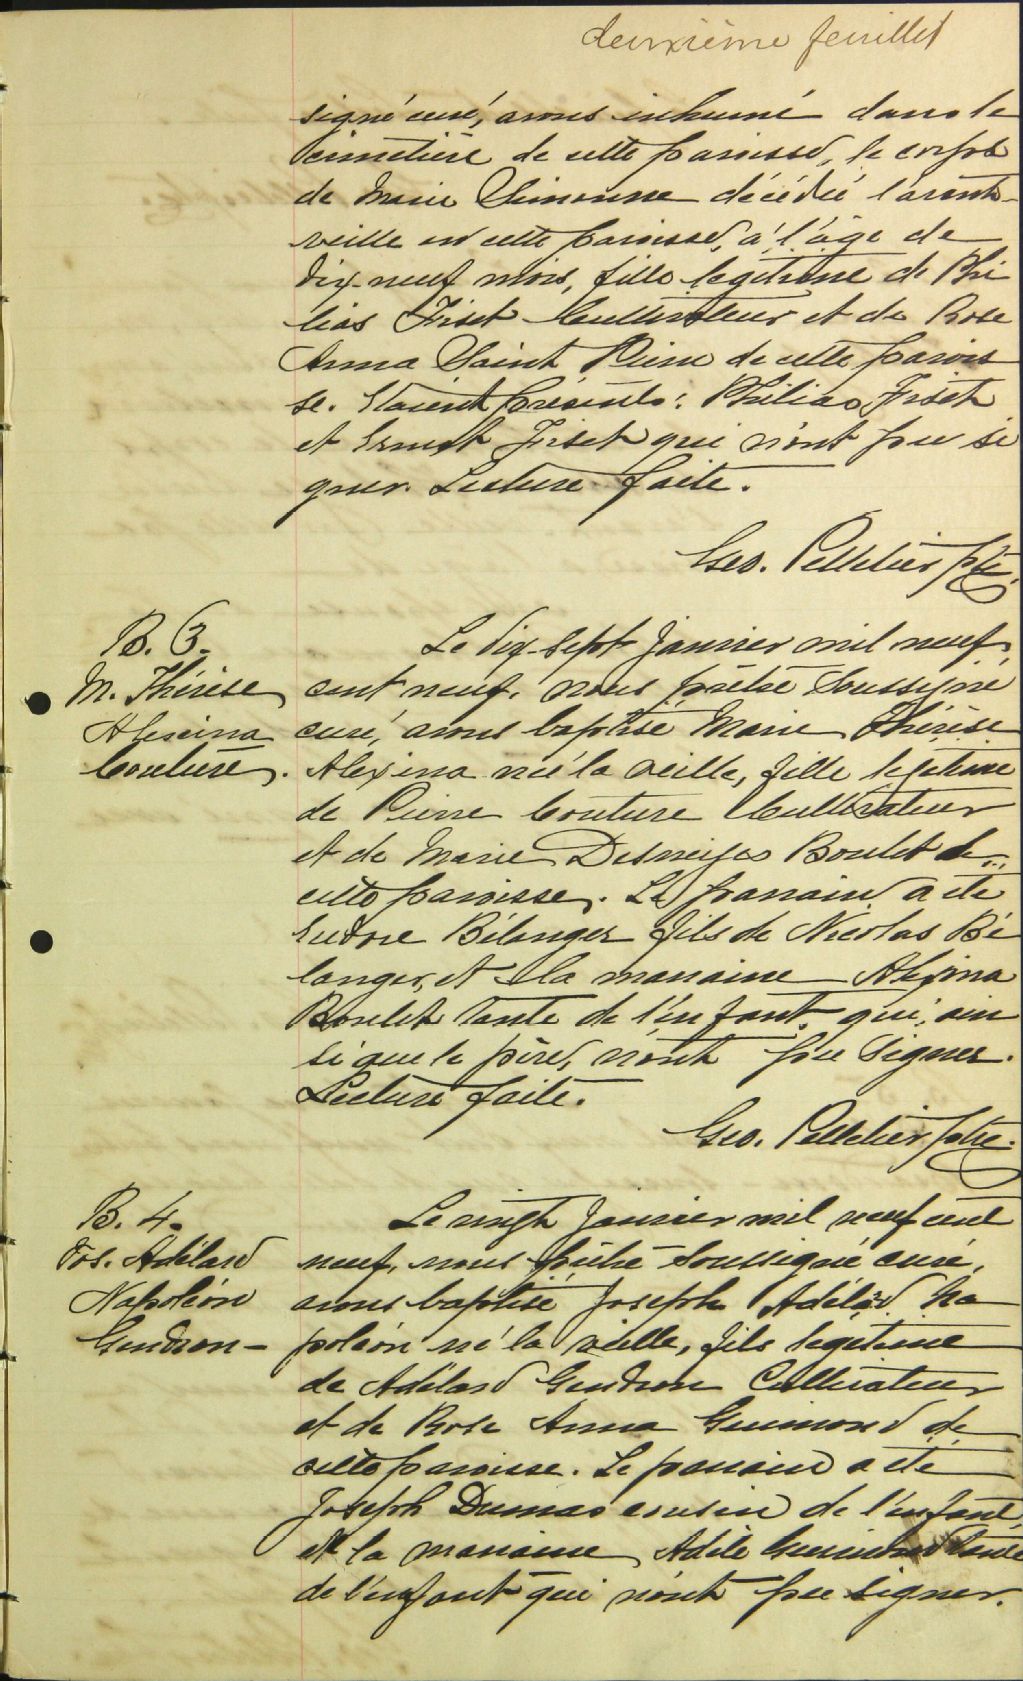 deuxième feuillet
signé curé, avons inhumé dans le
cimetière de cette paroisse, le corps
de Marie Simonne décédée l'avant-
veille en cette paroisse, à l'âge de
dix-neuf mois, fille legitime de Phi
lias Fiset Cultivateur et de Rose
Anna Saint Pierre de cette parois
se. Etaient présents: Philias Fiset
et Ernest Fiset qui n'ont pu si
gner. Lecture faite.
Geo. Pelletier ptre.
B. 3.
M. Thérèse
Alexina
Couture.
Le dix-sept Janvier mil neuf
cent neuf, nous prêtre soussigné
curé, avons baptisé Marie Thérèse
Alexina née la veille, fille legitime
de Pierre Couture Cultivateur
et de Marie Desneiges Boulet de
cette paroisse. Le parrain a été
Eudore Bélanger fils de Nicolas Bé
langer, et la marraine Alexina
Boulet tante de l'enfant qui, ain
si que le père, n'ont pu signer.
Lecture faite.
Geo. Pelletier, ptre.
B. 4.
Jos. Adélard
Napoléon
Gendron -
Le vingt Janvier mil neuf cent
neuf, nous prêtre soussigné curé,
avons baptisé Joseph Adélard Na
poléon né la veille, fils legitime
de Adélard Gendron Cultivateur
et de Rose Anna Guimond de
cette paroisse. Le parrain a été
Joseph Dumas cousin de l'enfant,
et la marraine Adèle Guimond tante
de l'enfant qui n'ont pu signer.